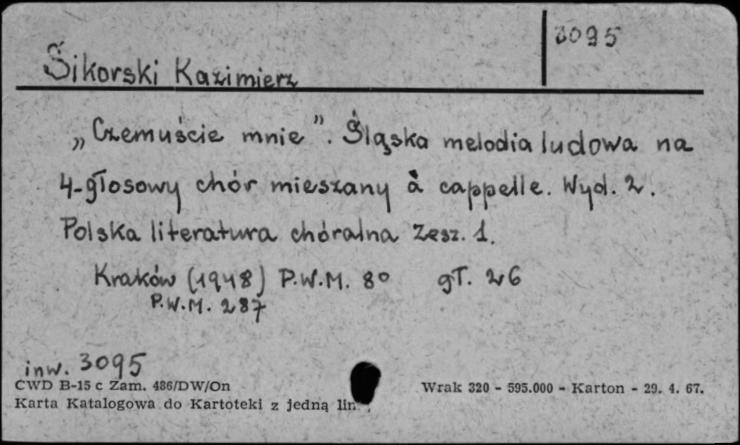 3095
Sikorski Kazimierz
„Czemuście mnie”. Śląska melodia ludowa na
4-głosowy chór mieszany à cappelle. Wyd. 2.
Polska literatura chóralna Zesz. 1.
Kraków (1948) P.W.M. 8° gł. 26
P.W.M. 287
inw. 3095
CWD B-15 c Zam. 486/DW/On Wrak 320 - 595.000 - Karton - 29. 4. 67.
Karta Katalogowa do Kartoteki z jedną lin